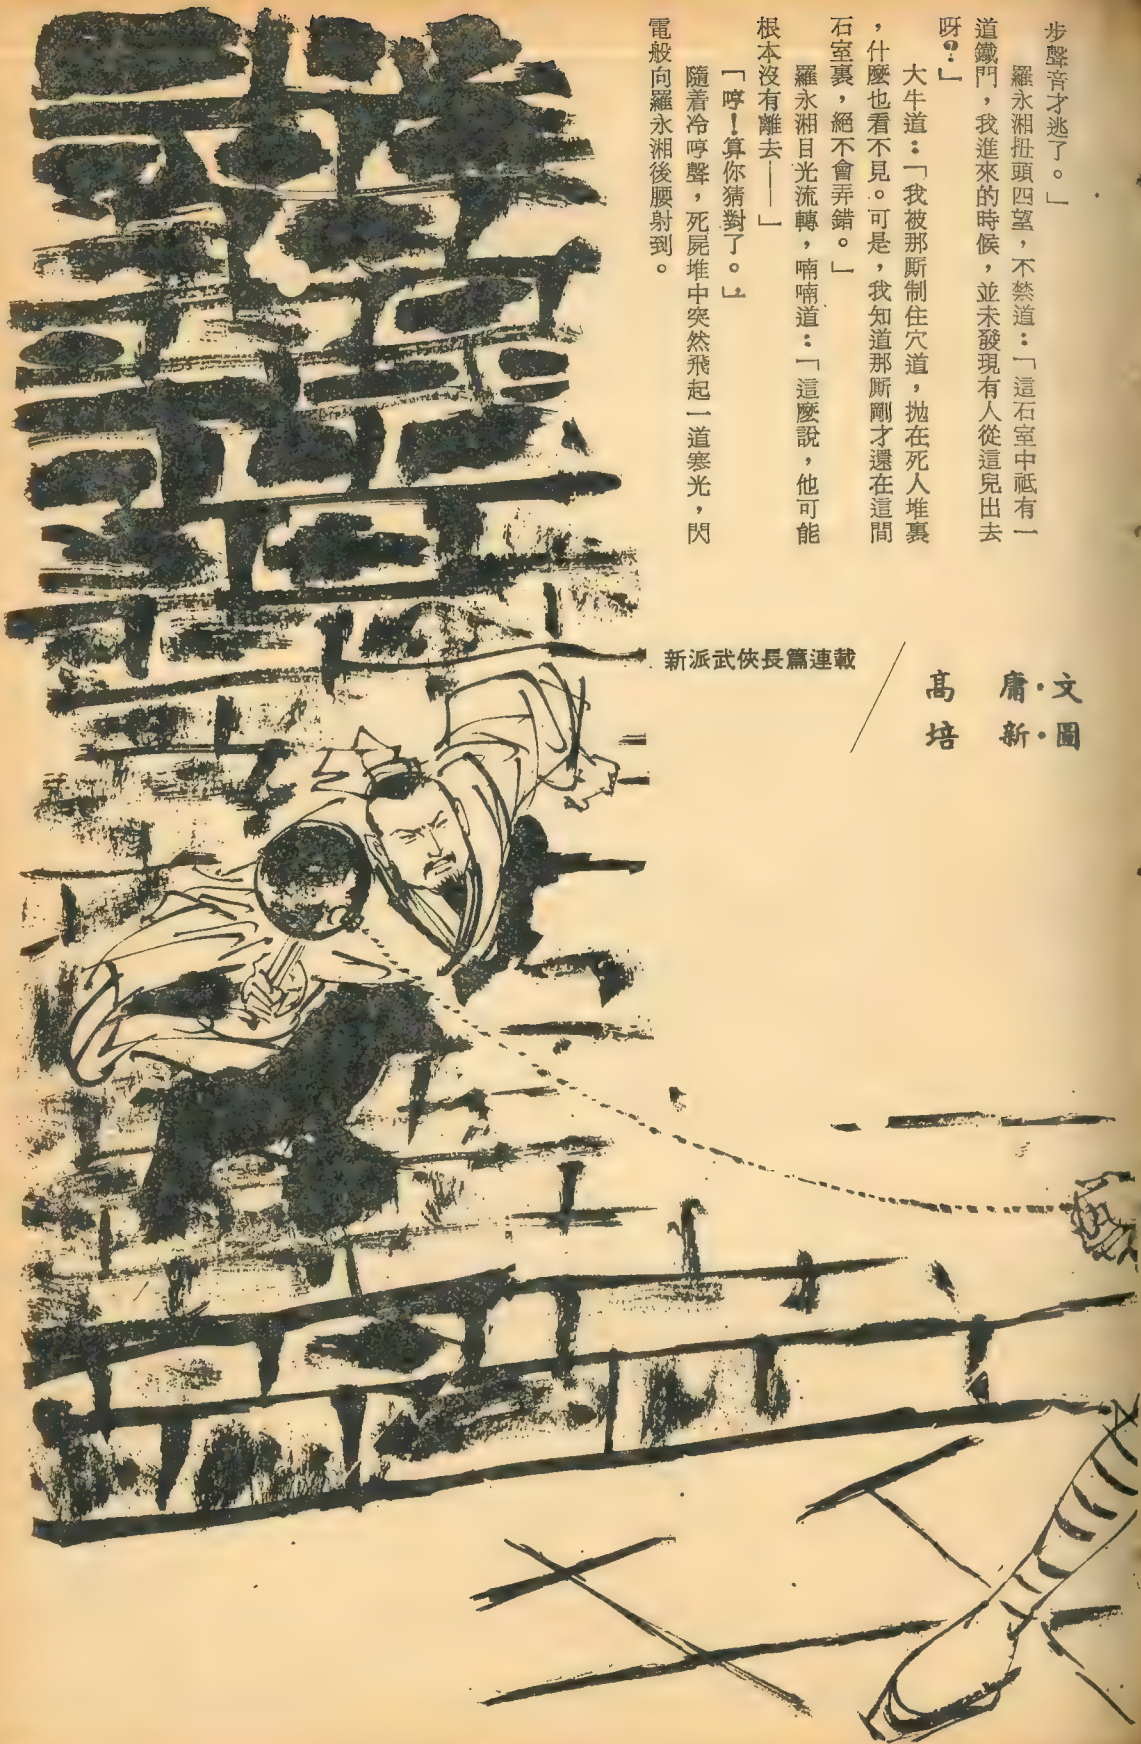 步聲音才逃了。」
羅永湘扭頭四望，不禁道：「這石室中祗有一
道鐵門，我進來的時候，並未發現有人從這兒出去
呀？」
大牛道：「我被那厮制住穴道，抛在死人堆裏
，什麼也看不見。可是，我知道那厮剛才還在這間
石室裏，絕不會弄錯。」
羅永湘目光流轉，喃喃道：「這麼說，他可能
根本沒有離去——」
「哼！算你猜對了。」
隨着冷哼聲，死屍堆中突然飛起一道寒光，閃
電般向羅永湘後腰射到。
新派武俠長篇連載
高 庸·文
培 新·圖